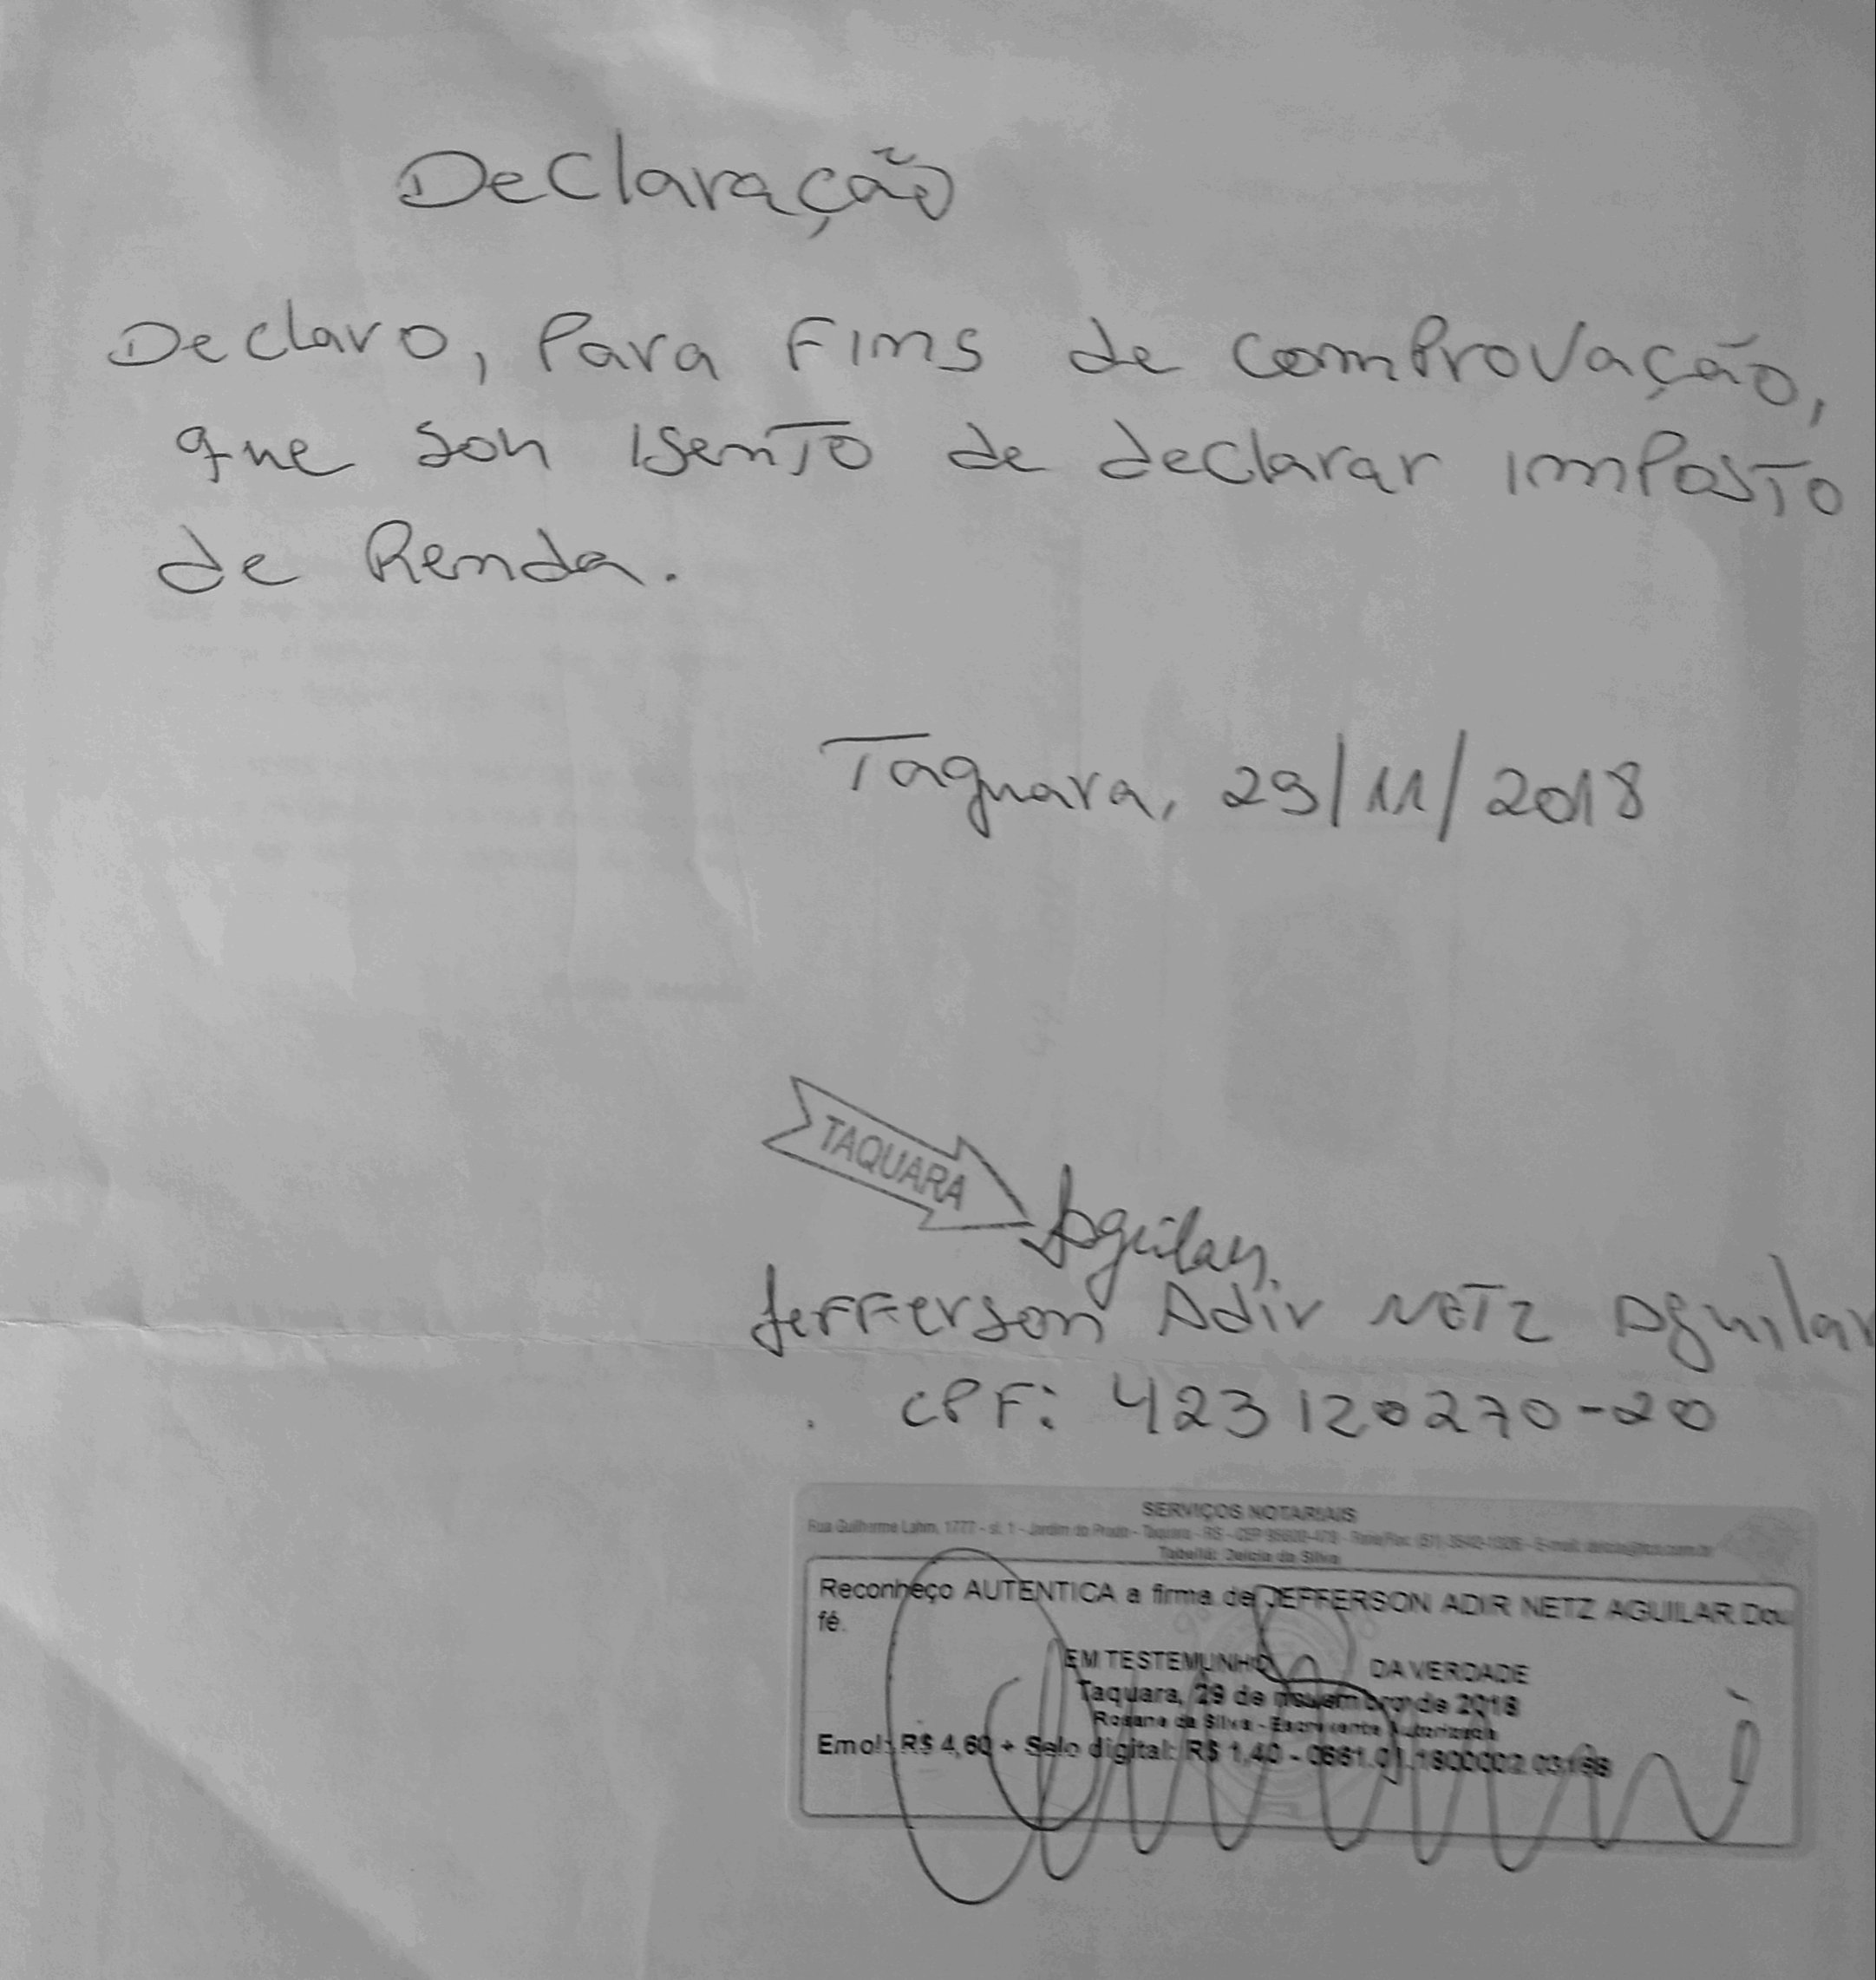 Declaração
Declaro, Para Fins de comProvação,
que sou IsenTo de declarar ImPosTo
de Renda.
Taquara, 29/11/2018
TAQUARA
Aguilar
Jefferson Adir NETZ Aguilar
CPF: 423120270-20
SERVIÇOS NOTARIAIS
Rua Guilherme Lahm, 1777 - sl. 1 - Jardim do Prado - Taquara - RS - CEP 95600-
Tabeliã: Delcia da Silva
Reconheço AUTENTICA a firma de JEFFERSON ADIR NETZ AGUILAR. Dou
fé.
EM TESTEMUNHO DA VERDADE
Taquara, 29 de novembro de 2018
Rosane da Silva - Escrevente Autorizada
Emol: R$ 4,60 + Selo digital: R$ 1,40 - 0661.01.1800002.03168